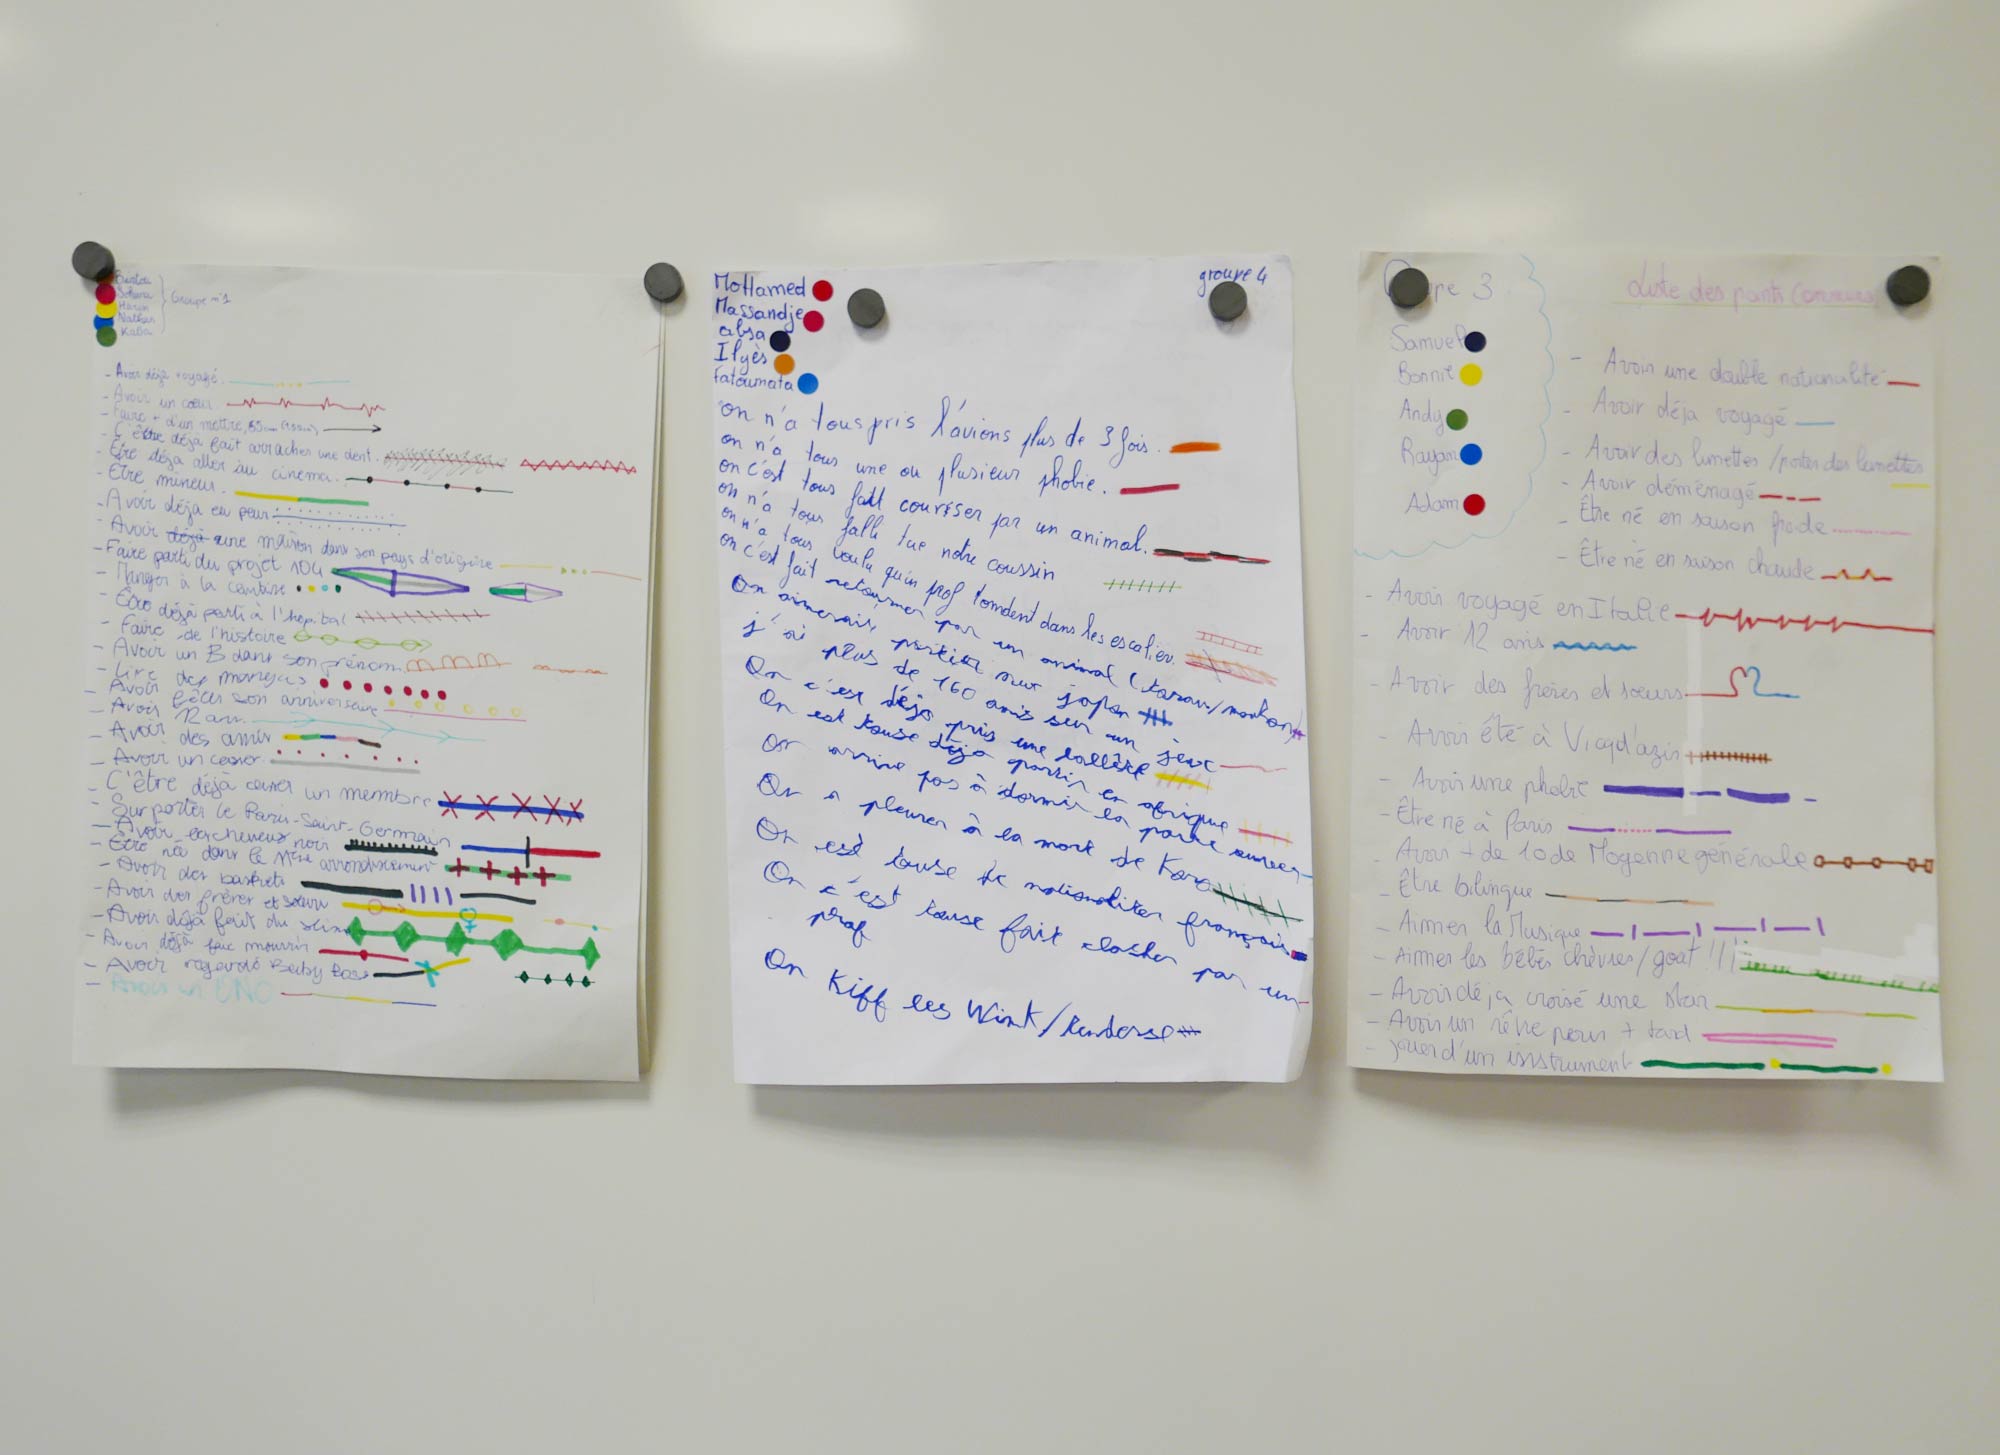 Groupe n°1
Nathan
Kaba
- Avoir déjà voyagé
- Avoir un cœur
- Faire + d'un mettre
- C'être déjà fait arracher une dent.
- Être déja aller au cinema.
- Etre mineur.
- Avoir déjà eu peur
- Avoir déjà une maison dans son pays d'origine
- Faire parti du projet 104
- Manger à la cantine
déjà parti à l'hopital
- Faire de l'histoire
- Avoir un B dans son prénom
- Lire des mangas
- Avoir fêter son anniversaire
- Avoir 12 an
- Avoir des amis
- Avoir un casier
- C'être déjà casser un membre
- Surporter le Paris-Saint-Germain
- Avoir les cheveux noir
- Être née dans le arrondissement
- Avoir des baskets
- Avoir des frères et sœurs
- Avoir déjà fait du
- Avoir déjà
- Avoir regardé Baby Boss
- Avoir un UNO
groupe 4
MoHamed
Massandje
absa
Ilyès
fatoumata
on n'a tous pris l'avions plus de 3 fois.
on n'a tous une ou plusieur phobie.
on c'est tous fait courser par un animal.
on n'a tous falli tue notre coussin
on n'a tous voulu qu'un prof tomdent dans les escalier.
on c'est fait retourner par un animal
On aimerais partier sur japon
j'ai plus de 160 amis sur un jeux
On c'est déjà pris une
On est touse déjà partir en afrique
On arrive pas à dormir la porte
On a pleurer à la mort de
On est touse de nationaliter français
On c'est touse fait clasher par un
prof
On Kiff les
3
Liste des points communs
Samuel
Bonnie
Andy
Rayan
Adam
- Avoir une double nationalité
- Avoir déja voyagé
- Avoir des lunettes / porter des lunettes
- Avoir déménagé
- Être né en saison froide
- Être né en saison chaude
- Avoir voyagé en Italie
- Avoir 12 ans
- Avoir des frères et sœurs
- Avoir été à Vicq d'azir
- Avoir une phobie
- Être né à Paris
- Avoir + de 10 de Moyenne générale
- Être bilingue
- Aimer la Musique
- Aimer les bébés chèvres / goat !!!
- Avoir déjà croisé une star
- Avoir un rêve pour + tard
- jouer d'un insstrument